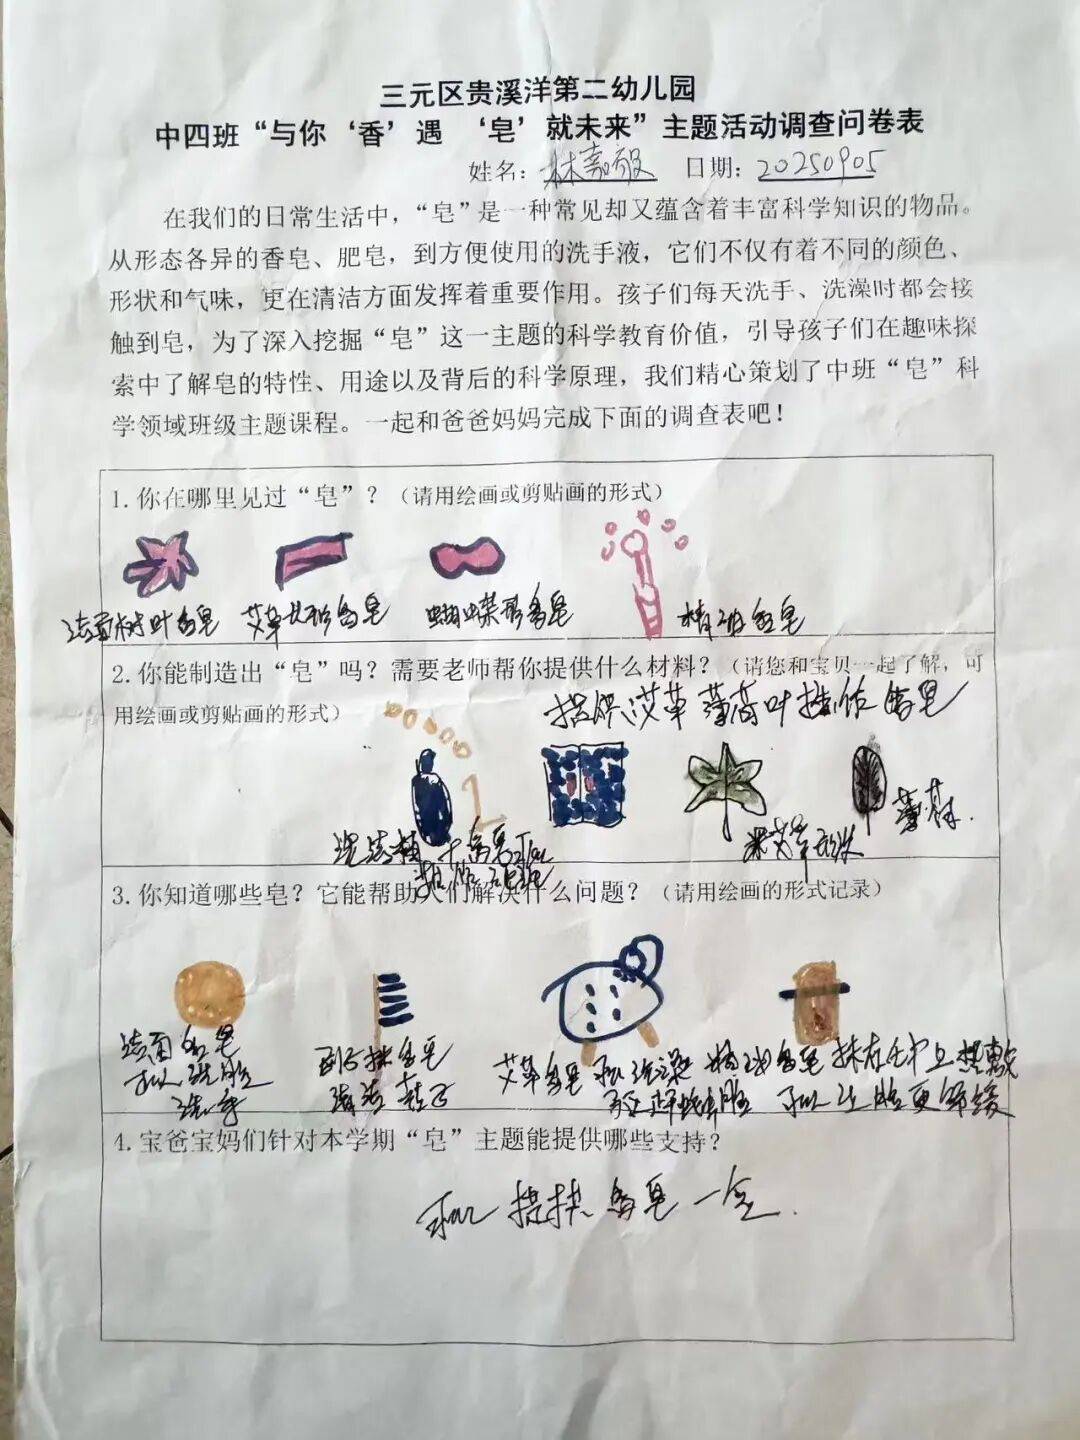 三元区贵溪洋第二幼儿园
中四班“与你‘香’遇 ‘皂’就未来”主题活动调查问卷表
姓名：林嘉毅 日期：20250905
在我们的日常生活中，“皂”是一种常见却又蕴含着丰富科学知识的物品。
从形态各异的香皂、肥皂，到方便使用的洗手液，它们不仅有着不同的颜色、
形状和气味，更在清洁方面发挥着重要作用。孩子们每天洗手、洗澡时都会接
触到皂，为了深入挖掘“皂”这一主题的科学教育价值，引导孩子们在趣味探
索中了解皂的特性、用途以及背后的科学原理，我们精心策划了中班“皂”科
学领域班级主题课程。一起和爸爸妈妈完成下面的调查表吧！
1.你在哪里见过“皂”？（请用绘画或剪贴画的形式）
树叶香皂 艾草 香皂 蝴蝶形香皂 香皂
2.你能制造出“皂”吗？需要老师帮你提供什么材料？（请您和宝贝一起了解，可
用绘画或剪贴画的形式）
提供艾草 薄荷叶 香皂
洗洁精 艾草形状 薄荷.
3.你知道哪些皂？它能帮助人们解决什么问题？（请用绘画的形式记录）
洁面香皂 香皂 艾草香皂 可以洗澡 香皂 抹在毛巾上热敷
可以洗脸 清洁 可以让 更舒缓
洗手
4.宝爸宝妈们针对本学期“皂”主题能提供哪些支持？
可以提供香皂一盒.